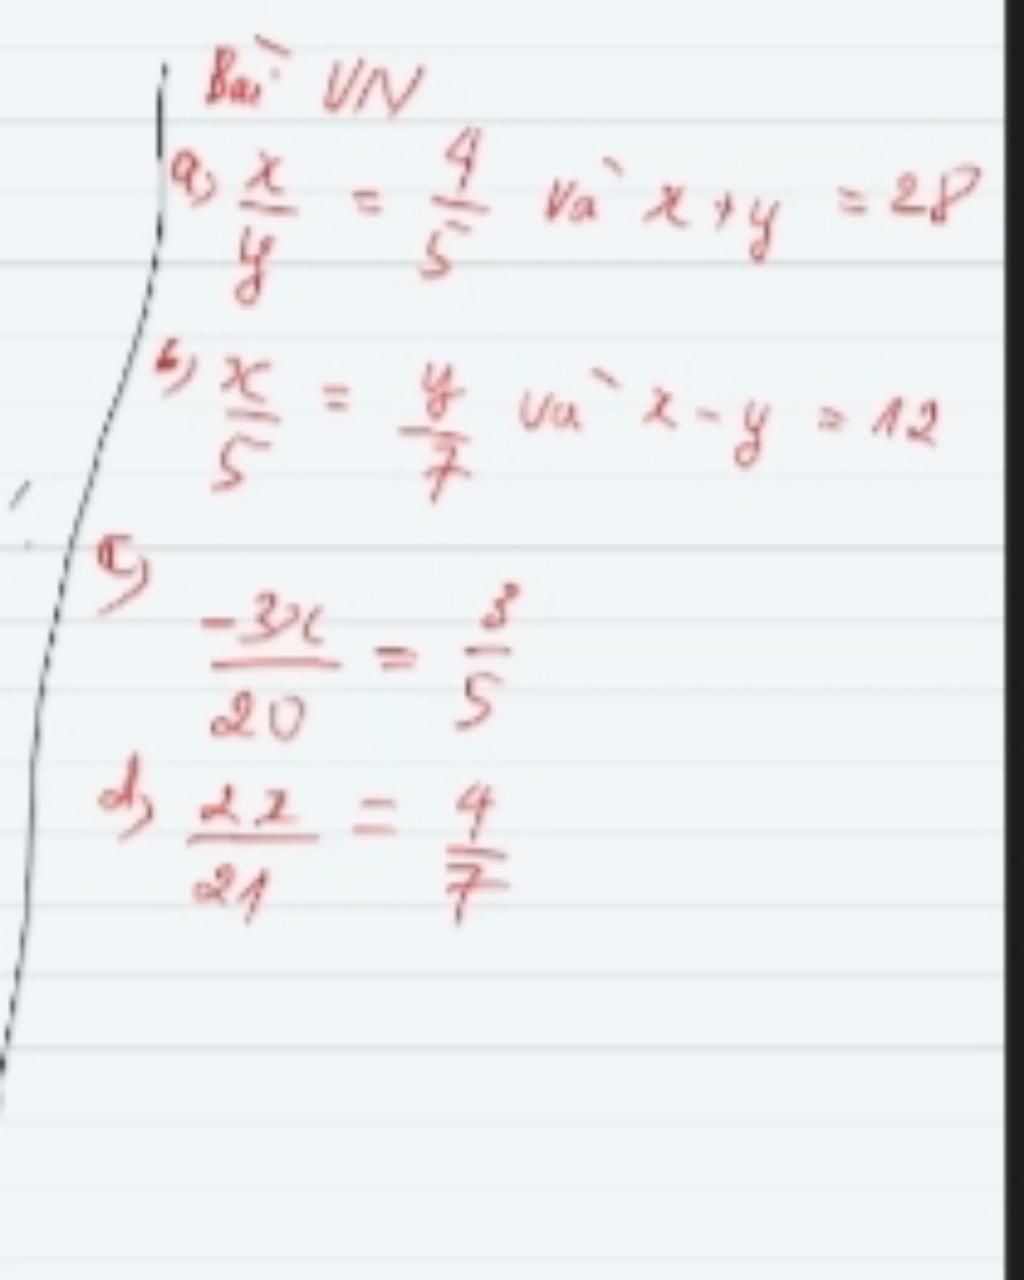 Bài VN
a) x/y = 4/5 Và x + y = 28
b) x/5 = y/7 Và x - y = 12
c)
-3x/20 = 3/5
d) 2x/21 = 4/7